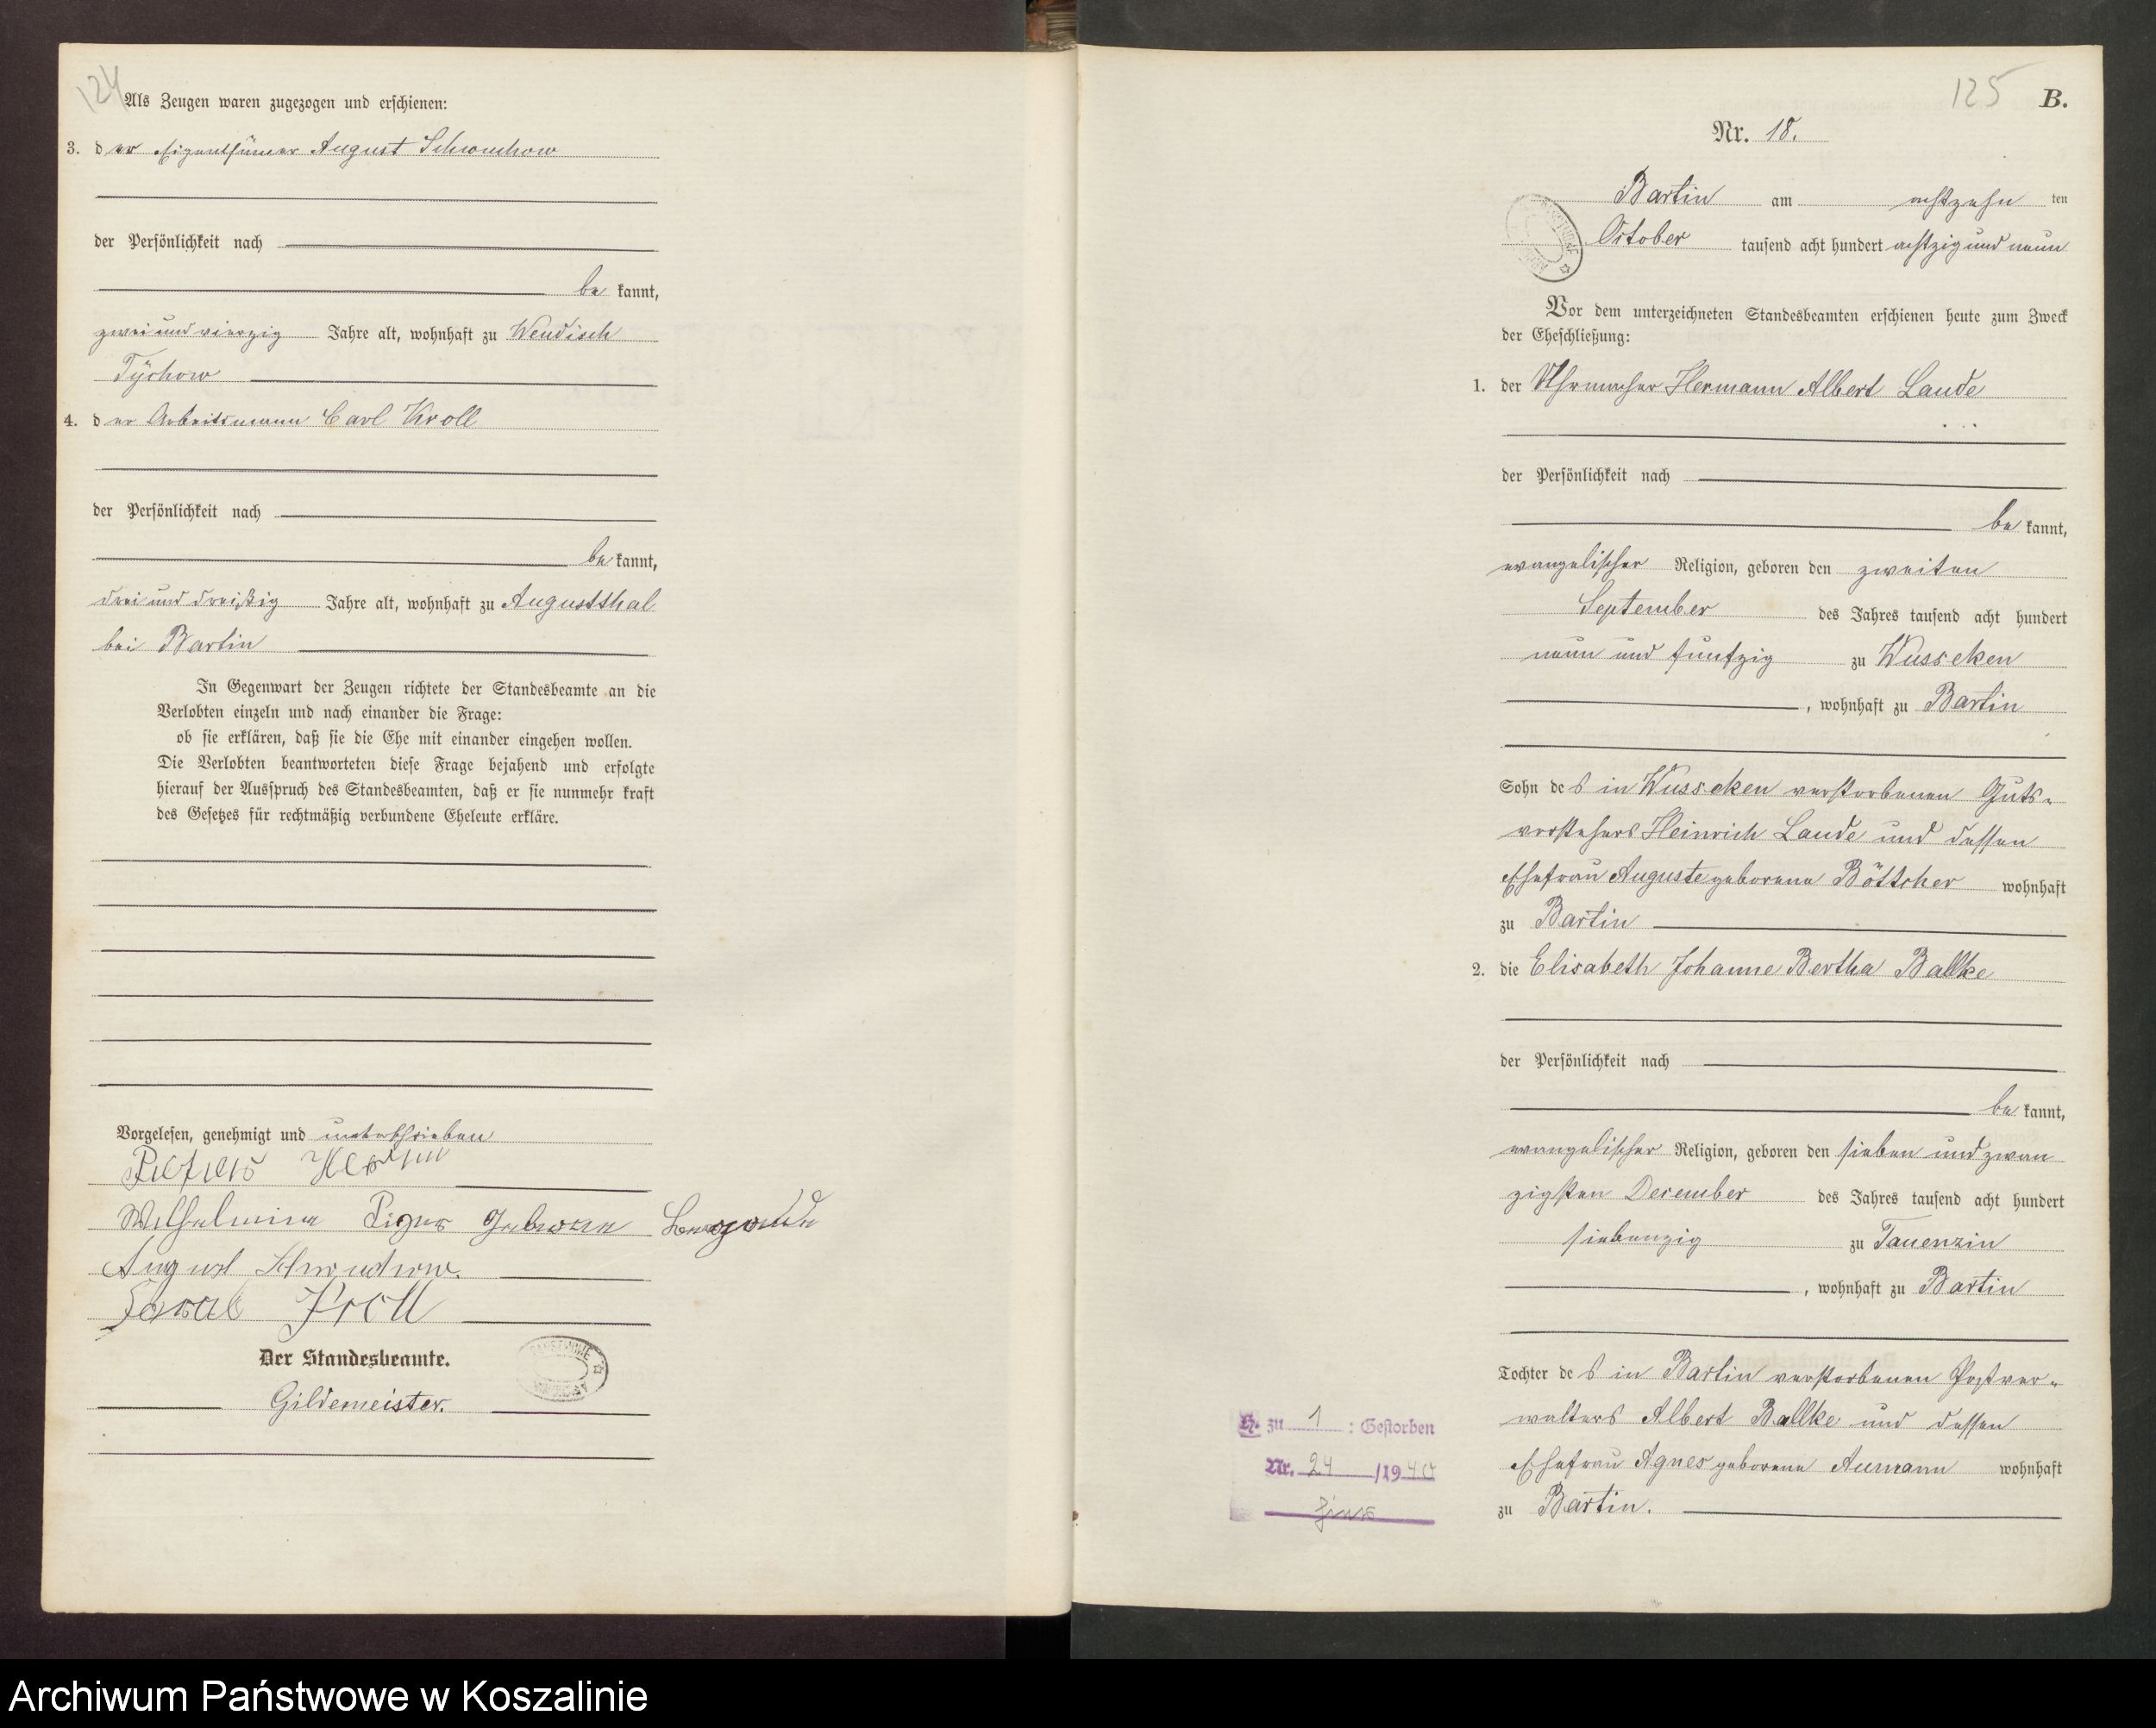 124
Als Zeugen waren zugezogen und erschienen:
3. der Eigenthümer August Schwuchow
der Persönlichkeit nach
bekannt,
zwei und vierzig Jahre alt, wohnhaft zu Wendisch
Tÿchow
4. der Arbeitsmann Carl Kroll
der Persönlichkeit nach
bekannt,
drei und dreißig Jahre alt, wohnhaft zu Augustthal
bei Bartin
In Gegenwart der Zeugen richtete der Standesbeamte an die
Verlobten einzeln und nach einander die Frage:
ob sie erklären, daß sie die Ehe mit einander eingehen wollen.
Die Verlobten beantworteten diese Frage bejahend und erfolgte
hierauf der Ausspruch des Standesbeamten, daß er sie nunmehr kraft
des Gesetzes für rechtmäßig verbundene Eheleute erkläre.
Vorgelesen, genehmigt und unterschrieben
Wilhelmine geborene
August Schwuchow.
Kroll
Der Standesbeamte.
Gildemeister.
125
B.
Nr. 18.
Bartin am achtzehnten
October tausend acht hundert achtzig und neun
Vor dem unterzeichneten Standesbeamten erschienen heute zum Zweck
der Eheschließung:
1. der Uhrmacher Hermann Albert Laude
der Persönlichkeit nach
bekannt,
evangelischer Religion, geboren den zweiten
September des Jahres tausend acht hundert
neun und funfzig zu Wusseken
, wohnhaft zu Bartin
Sohn des in Wusseken verstorbenen Guts-
vorstehers Heinrich Laude und dessen
Ehefrau Auguste geborene Böttcher wohnhaft
zu Bartin
2. die Elisabeth Johanne Bertha Ballke
der Persönlichkeit nach
bekannt,
evangelischer Religion, geboren den sieben und zwan
zigsten December des Jahres tausend acht hundert
siebenzig zu Tauenzin
, wohnhaft zu Bartin
Tochter des in Bartin verstorbenen Postver-
walters Albert Ballke und dessen
Ehefrau Agnes geborene Aumann wohnhaft
zu Bartin.
H. zu 1 : Gestorben
Nr. 24 /1940
hier
Archiwum Państwowe w Koszalinie